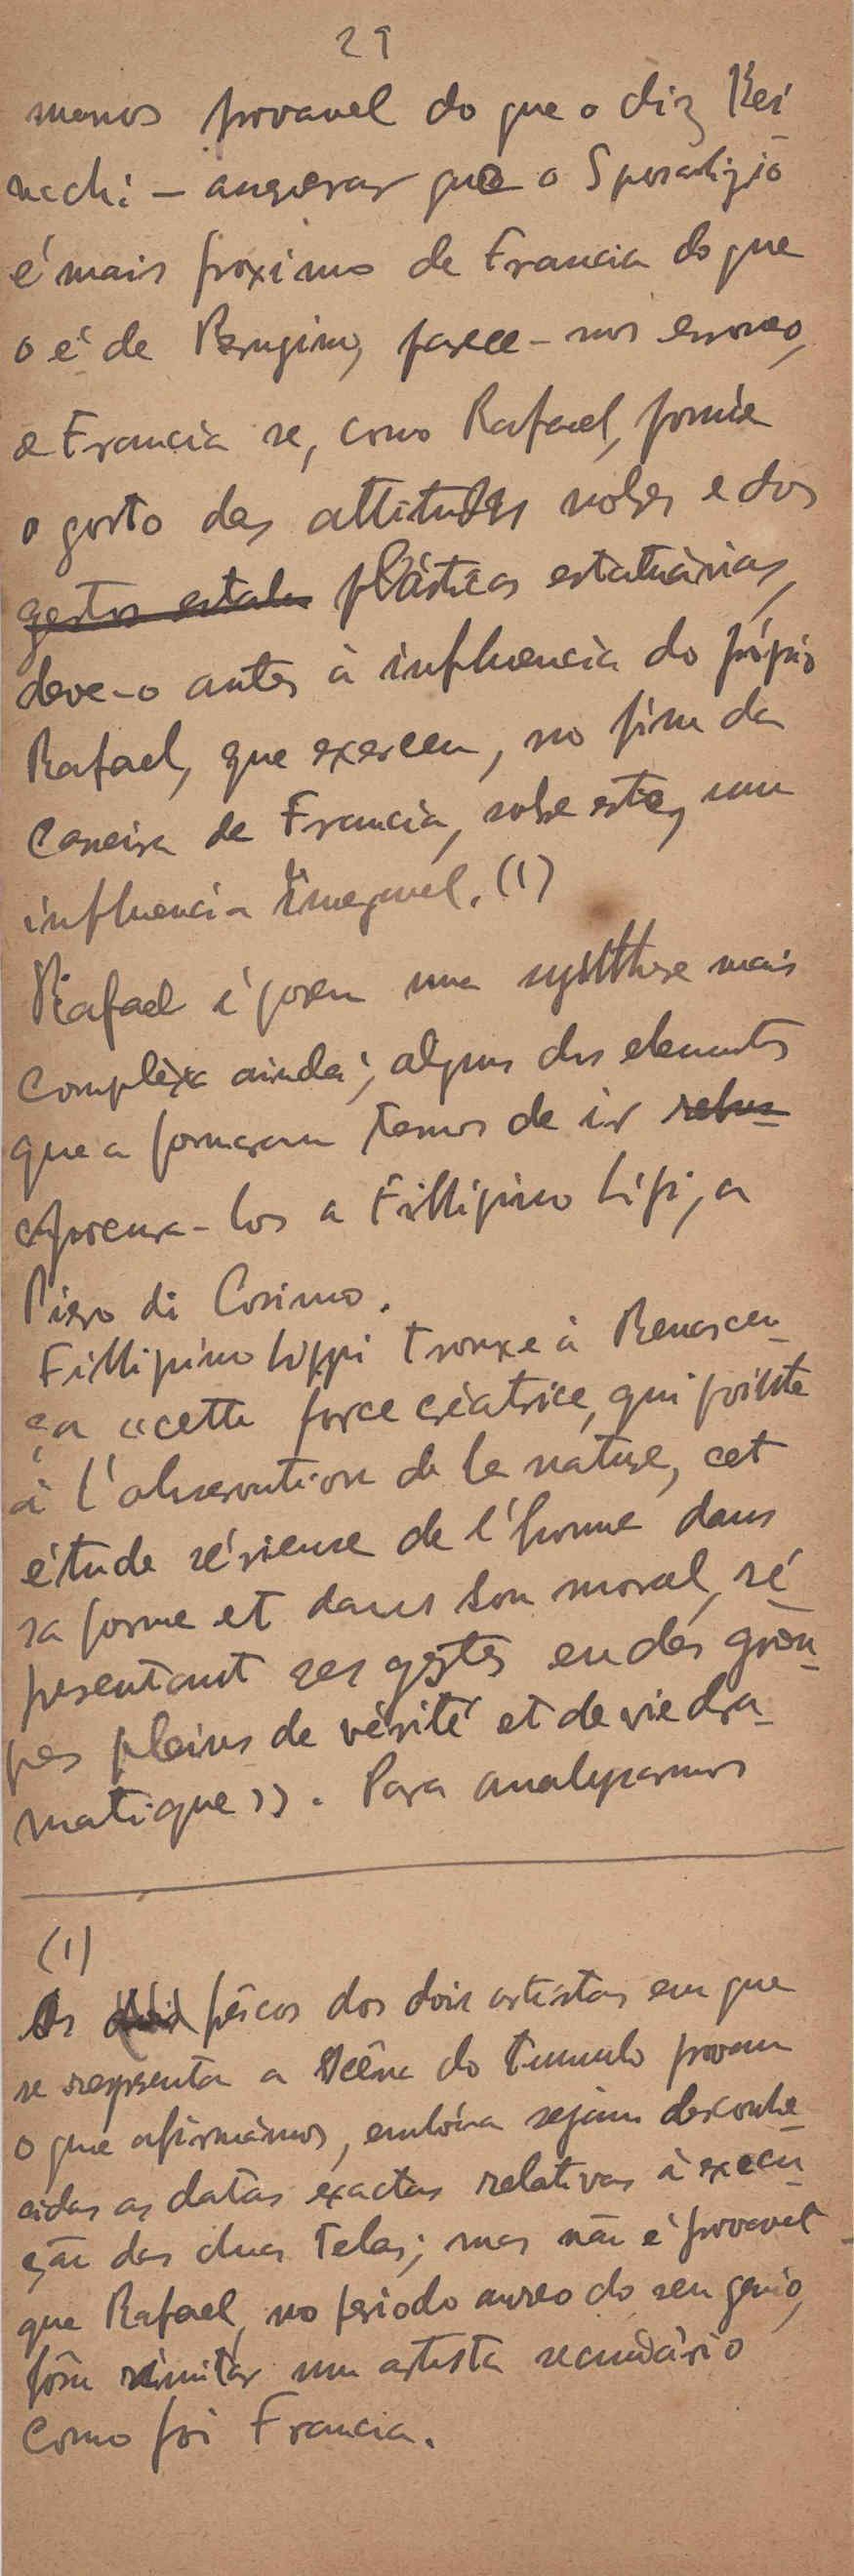 29
menos provavel do que o diz Rei
nachi — asseverar que o Sposalizio
é mais proximo de Francia do que
o é de Perugino, parece-nos erroneo,
e Francia se, como Rafael, possúe
o gosto das attitudes nobres e dos
gestos estatu plásticas estatuárias,
deve-o antes à influencia do próprio
Rafael, que exerceu, no fim da
Carreira de Francia, sobre este, uma
influencia inegavel. (1)
Rafael é porem uma synthese mais
complèxa ainda; alguns dos elementos
que a formaram temos de ir rebus-
procura-los a Fillipino Lipi, a
Piero di Cosimo.
Fillipino Lippi trouxe à Renascen-
ça «cette force créatrice, qui pointe
à l'observation de la nature, cet
étude sérieuse de l'homme dans
sa forme et dans son moral, ré
presentant ses gestes en des grou-
pes pleins de vérité et de vie dra-
matique». Para analysarmos
(1)
As dois pêcos dos dois artistas em que
se representa a scêna do tumulo provam
o que afirmâmos, embóra sejam desconhe-
cidas as datas exactas relativas à execu-
ção das duas telas; mas não é provavel
que Rafael, no periodo aureo do seu genio,
fôsse imitar um artista secundário
como foi Francia.